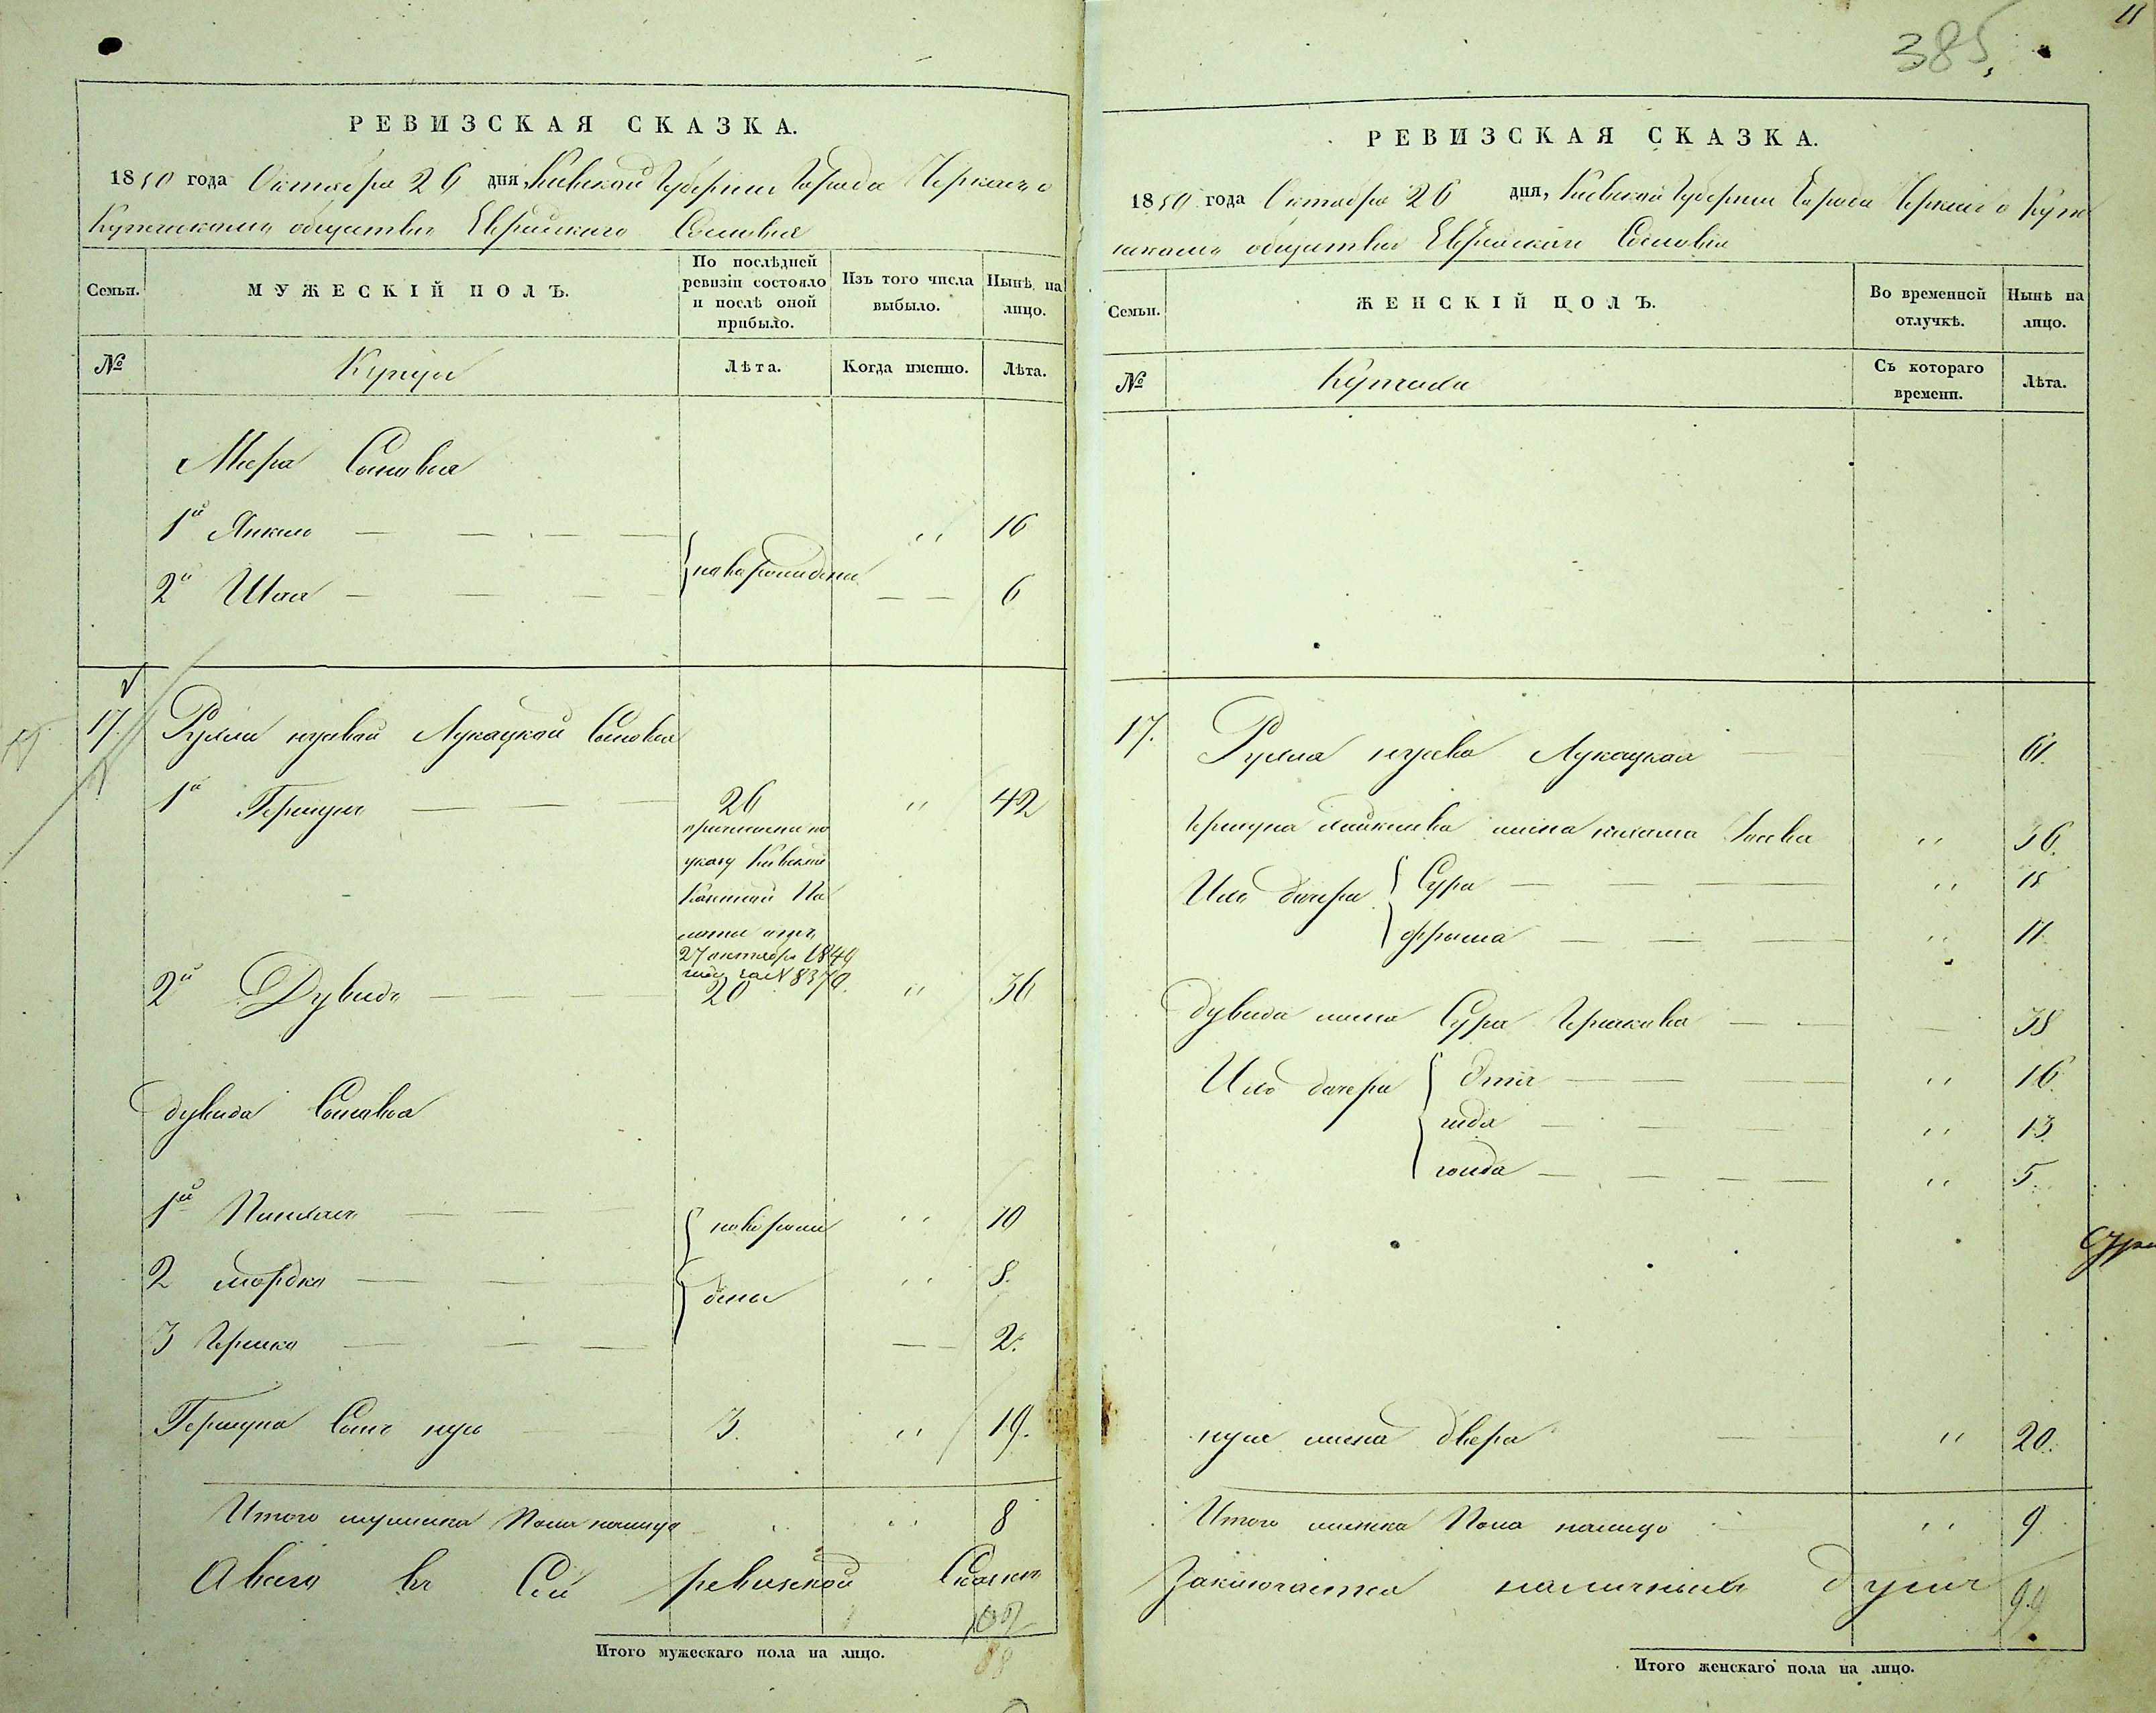 385.
11
РЕВИЗСКАЯ СКАЗКА.
1850 года Октября 26 дня, Киевской Губерніи Города Черкасъ о
Купеческомъ обществѣ Еврейскаго Сословія
Семьи.
МУЖЕСКІЙ ПОЛЪ.
По послѣдней ревизіи состояло и послѣ оной прибыло.
Изъ того числа выбыло.
Нынѣ на лицо.
№
Купцы
Лѣта.
Когда именно.
Лѣта.
Сыновья
1й Янкель 16
2й Шая 6
новорождены
17. Рухли Лукацкой Сыновья
1й Гершунъ 26 42
причислены по
указу Кіевской
Казенной Па
латы отъ
27 октября 1849
года за N 8379.
2й Дувидъ 20 36
Дувида Сыновья
1й Пинхасъ 10
2 Мордко 8.
3 Гершко 2.
новорож
дены
Гершуна Сынъ 3. 19.
Итого мужеска Пола налицо 8
А всего въ Сей ревизской Сказкѣ
Итого мужескаго пола на лицо.
88
РЕВИЗСКАЯ СКАЗКА.
1850 года Октября 26 дня, Киевской Губерніи Города Черкасъ о Купе
ческомъ обществѣ Еврейскаго Сословія
Семьи.
ЖЕНСКІЙ ПОЛЪ.
Во временной отлучкѣ.
Нынѣ на лицо.
№
Купчихи
Съ котораго времени.
Лѣта.
17. Лукацкая 61.
Гершуна жена 36.
Ихъ дочери Сура 15
Фрыма 11.
Дувида жена Сура Гершкова 38
Ихъ дочери 16.
13.
5.
Сура
жена Двера 20.
Итого женска Пола налицо 9.
Заключается наличныхъ Душъ 99
Итого женскаго пола на лицо.